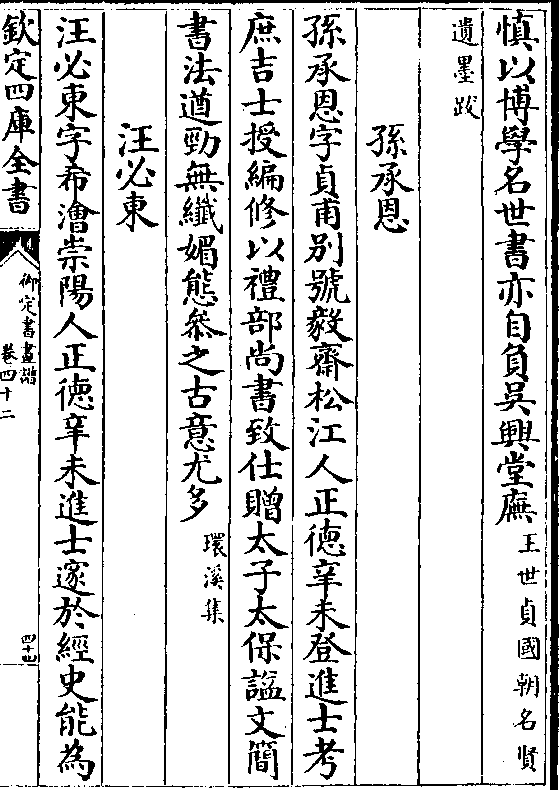 慎以博學名世書亦自負吳興堂廡王世貞國朝名賢
遺墨跋
孫承恩
孫承恩字貞甫别號毅齋松江人正徳辛未登進士考
庶吉士授編修以禮部尚書致仕贈太子太保諡文簡
書法遒勁無纎媚態叅之古意尤多環溪集
汪必東
汪必東字希澮崇陽人正徳辛未進士邃於經史能為
欽定四庫全書
御定書畫譜
卷四十二